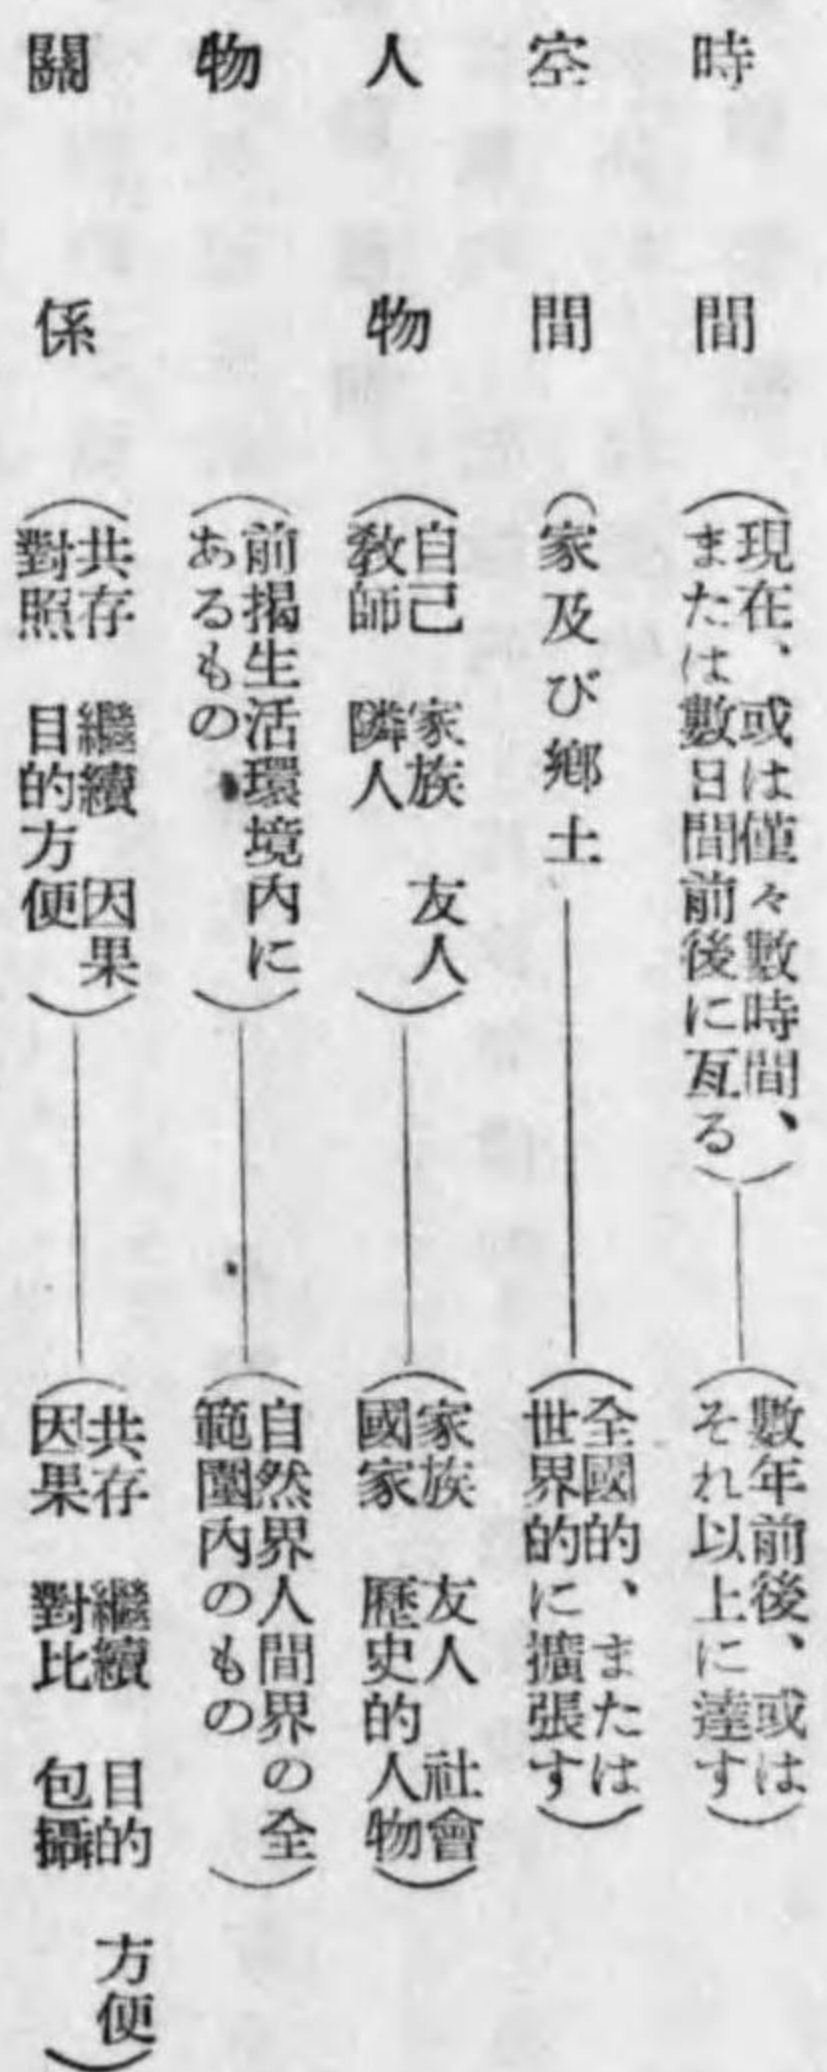 時間
(現在、或は僅々數時間、
または數日間前後に亙る)
(數年前後、或は
それ以上に達す)
空間
(家及び鄕土
(全國的、または
世界的に擴張す)
人物
(自己 家族 友人
敎師 隣人)
(家族 友人 社會
國家 歷史的人物)
物
(前揭生活環境內に
あるもの)
(自然界人間界の全
範圍內のもの)
關係
(共存 繼續 因果
對照 目的方便)
(共存 繼續 目的 方便
因果 對比 包攝)